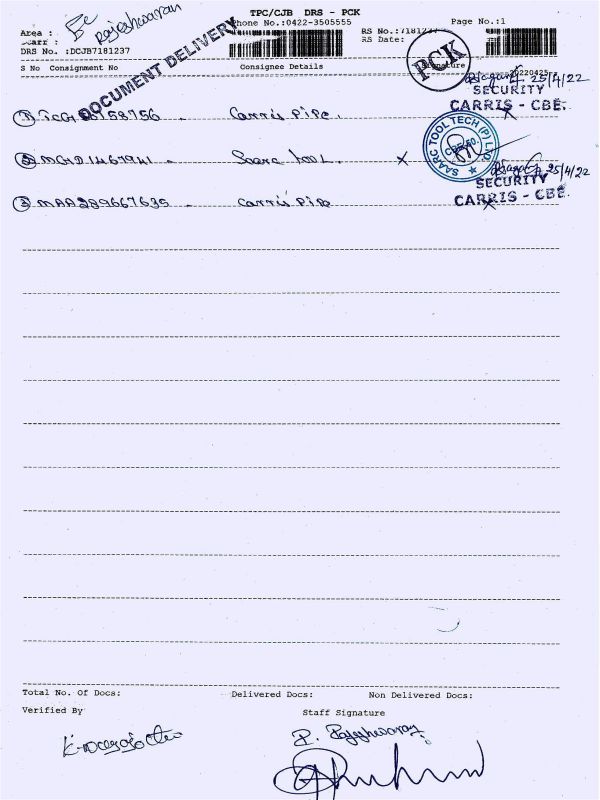 TPC/CJB DRS - PCK
Phone No.:0422-3505555
Page No.:1
Area :
Rajeshwaran
RS No.:7181237
RS Date:
PCK
DRS No. :DCJB7181237
DOCUMENT DELIVERY
S No Consignment No Consignee Details Signature
20220425
25/4/22
SECURITY
CARRIS - CBE.
① - Carris Pipe.
SAARC TOOL TECH (P) LTD.
② - Saarc Tool. X
25/4/22
SECURITY
CARRIS - CBE.
③ MAA289667635 - Carris Pipe
Total No. Of Docs: Delivered Docs: Non Delivered Docs:
Verified By Staff Signature